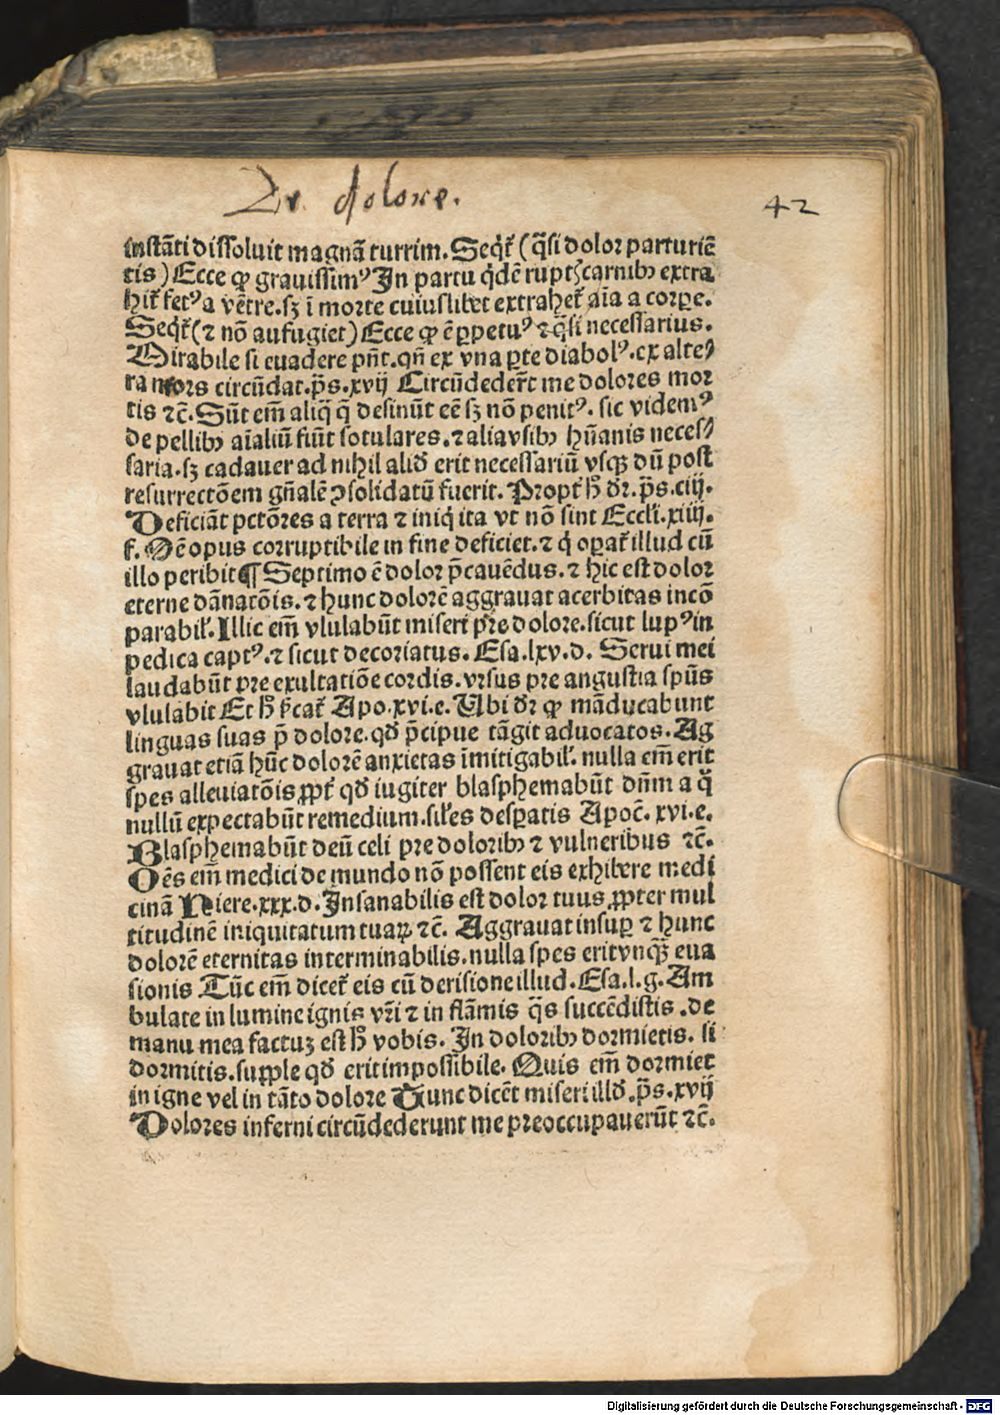 De dolore.
42
instāti dissoluit magnā turrim. Seqt̄ (q̄si dolor parturiē
tis) Ecce ꝙ grauissimꝰ In partu q̇dē ruptꝭ carnibꝫ extra
hit̄ fetꝰ a vētre. sꝫ ī morte cuiuslibet extrahet̄ aīa a corpe.
Seqt̄ (⁊ nō aufugiet) Ecce ꝙ ē ꝑpetuꝰ ⁊ q̄si necessarius.
Mirabile si euadere pn̄t. qn̄ ex vna ꝑte diabolꝰ. ex alte
ra mors circūdat. ps̄. xvij Circūdeder̄t me dolores mor
tis ⁊c̄. Sūt em̄ aliq̄ q̄ desinūt eē sꝫ nō penitꝰ. sic videmꝰ
de pellibꝫ aīaliū fiūt sotulares. ⁊ alia vsibꝫ hūanis neces
saria. sꝫ cadauer ad nihil aliđ erit necessariū vsqꝫ dū post
resurrectōem gn̄alē ꝯsolidatū fuerit. Propt̄ h̄ dr̄. ps̄. ciij.
Deficiāt pctōres a terra ⁊ iniq̇ ita vt nō sint Eccli. xiiij.
f. Oē opus corruptibile in fine deficiet. ⁊ q̇ oꝑat̄ illud cū
illo peribit ¶ Septimo ē dolor p̄cauēdus. ⁊ hic est dolor
eterne dānatōis. ⁊ hunc dolorē aggrauat acerbitas incō
parabil̕. Illic em̄ vlulabūt miseri pre dolore. sicut lupꝰ in
pedica captꝰ. ⁊ sicut decoriatus. Esa. lxv. d. Serui mei
laudabūt pre exultatiōe cordis. vrsus pre angustia spūs
vlulabit Et h̄ Apo. xvi. e. Ubi dr̄ ꝙ māducabunt
linguas suas p̄ dolore. qđ p̄cipue tāgit aduocatos. Ag
grauat etiā hūc dolorē anxietas īmitigabil̕. nulla em̄ erit
spes alleuiatōis ꝓpt̄ qđ iugiter blasphemabūt dn̄m a q̊
nullū expectabūt remedium. sil̕es desꝑatis Apoc̄. xvi. e.
Blasphemabūt deū celi pre doloribꝫ ⁊ vulneribus ⁊c̄.
Oēs em̄ medici de mundo nō possent eis exhibere medi
cinā Hiere. xxx. d. Insanabilis est dolor tuus ꝓpter mul
titudinē iniquitatum tuaꝝ ⁊c̄. Aggrauat insuꝑ ⁊ hunc
dolorē eternitas interminabilis. nulla spes erit vnq̄ꝫ eua
sionis Tūc em̄ dicet̄ eis cū derisione illud. Esa. l. g. Am
bulate in lumine ignis vr̄i ⁊ in flāmis q̄s succēdistis. de
manu mea factuꝫ est h̄ vobis. In doloribꝫ dormietis. si
dormitis. supple qđ erit impossibile. Quis em̄ dormiet
in igne vel in tāto dolore Tunc dicēt miseri illđ. ps̄. xvij
Dolores inferni circūdederunt me preoccupauerūt ⁊c̄.
Digitalisierung gefördert durch die Deutsche Forschungsgemeinschaft - DFG